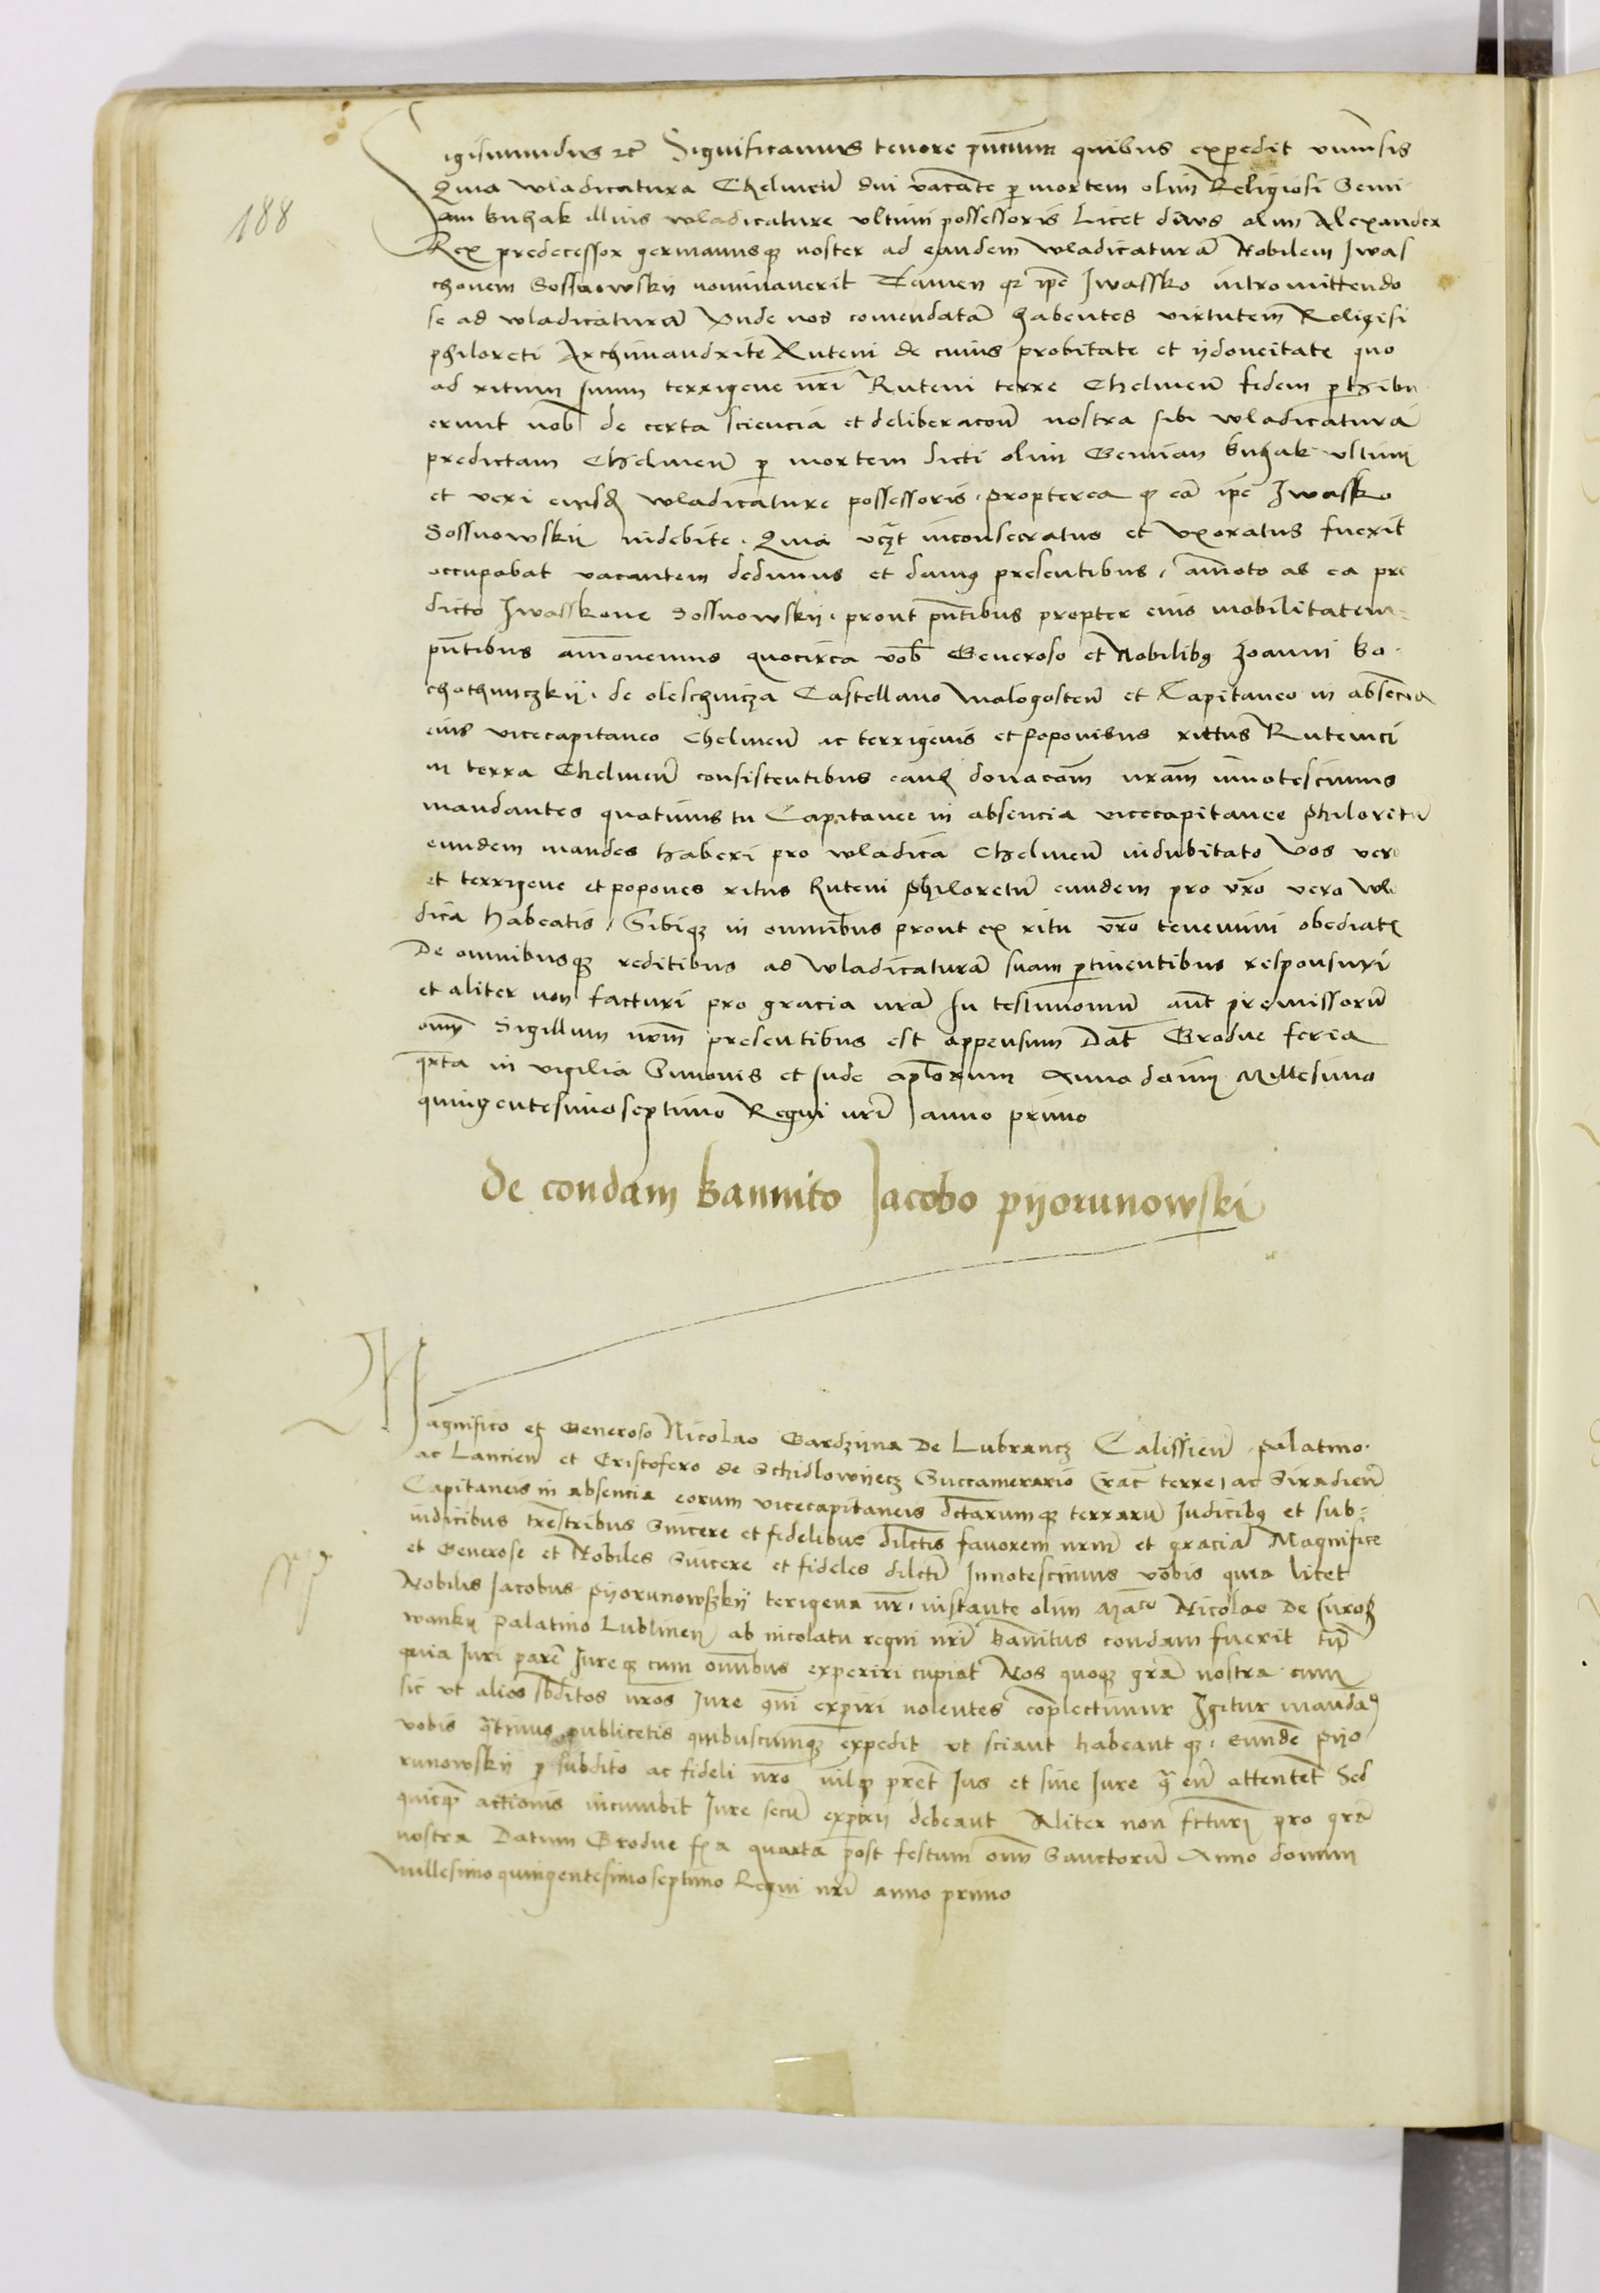 188
Sigismundus etc̄ Significamus tenore pn̄cium quibus expedit vniu̇sis
Quia wladicatura Chelmen̄ dui vacante p mortem olim Religiosi Semi
am kuhak illius wladicature vltimi possessoris Licet diws olim Alexander
Rex predecessor germanusqz noster ad eandem wladicaturā Nobilem Jwas
chonem Sossnowskij nominauerit Tamen qz ip̄e Jwassko intromittendo
se ad wladicaturam Vnde nos comendatā habentes virtutem Religisi
philoreti Archimandrite Ruteni de cuius probitate et ydoneitate quo
ad ritum suum terrigene nr̄i Ruteni terre Chelmen̄ fedem p̱hibu
erunt nob̄ de certa sciencia et deliberacōne nostra sibi wladicaturā
predictam Chelmen̄ p mortem dicti olim Semian kuhak vltimi
et veri eiusd wladicature possessoris propterea qz eā ip̄e Jwassko
Sossnowskij indebite Quia vcz̄t inconsecratus et vxoratus fuerit
occupabat vacantem dedimus et damus presentibus, amoto ab ea pre
dicto Jwasskone Sossnowskij prout pn̄tibus propter eius mobilitatem
pn̄tibus amouemus quocirca vob̄ Generoso et Nobilibus Joanni ko
chothniczkij de oleschnicza Castellano malogosten̄ et Capitaneo in absencia
eius vicecapitaneo Chelmen̄ ac terrigenis et poponibus rittus Rutenici
in terra Chelmen̄ consistentibus eand donacōm nr̄am innotescimus
mandantes quatinus tu Capitanee in absencia vicecapitanee philoretū
eundem mandes haberi pro wladica Chelmen̄ indubitato Vos vero
et terrigene et popones ritus Ruteni philoretum eundem pro vr̄o vero wla
dica habeatis, Sibiqz in omnibus prout ex ritu vr̄o tenemini obediatis
De omnibusqz reditibus ad wladicaturā suam pertinentibus responsuri
et aliter non facturi pro gracia nr̄a In testimonium aut̄ premissorū
om̄ Sigillum nr̄m presentibus est appensum Dat̄ Grodne feria
qr̄ta in vigilia Simonis et Jude aplōrum Anno domini Millesimo
quingentesimo septimo Regni nr̄i anno primo
de condam bannito Jacobo pijorunowski
Magnifico et Generoso Nicolao Gardzijna De Lubrancz Calissien̄ palatino
ac Lancicien̄ et Cristofero de Schidlowijecz Succamerario Crac̄ terre, ac Siradien̄
Capitaneis in absencia eorum vicecapitaneis dc̄tarumqz terrarū Judicibus et sub-
iudicibus tr̄estribus Sincere et fidelibus dilc̄tis fauorem nr̄m et graciā Magnifice
et Generose et Nobiles Sincere et fideles dilc̄ti Innotescimus vobis quia licet
Nobilis Jacobus pijorunowskij terigena nr̄ instante olim Mag̅co Nicolao De Curoz
wanky palatino Lublinen̄ ab incolatu regni nr̄i banitus condam fuerit tn̄
quia Juri parē Jureqz cum om̄ibus experiri cupiat Nos quoqz grā nostra eum
sic vt alios sb̄ditos nr̄os Jure qn̄i experiri nolentes complectimur Igitur mandamus
vobis q̄tinus publicetis quibuscumqz expedit vt sciant habeant qz eundē pijo
runowskij p subdito ac fideli nr̄o nilqz pret̄ Jus et sine Jure q̄ eū attentet̄ Sed
quicqd actionis incumbit Jure secū experiri debeant Aliter non fc̄turi pro gr̄a
nostra Datum Grodne fr̄ia quarta post festum om̄ Sanctorū Anno domini
millesimo quingentesimo septimo Regni nr̄i anno primo